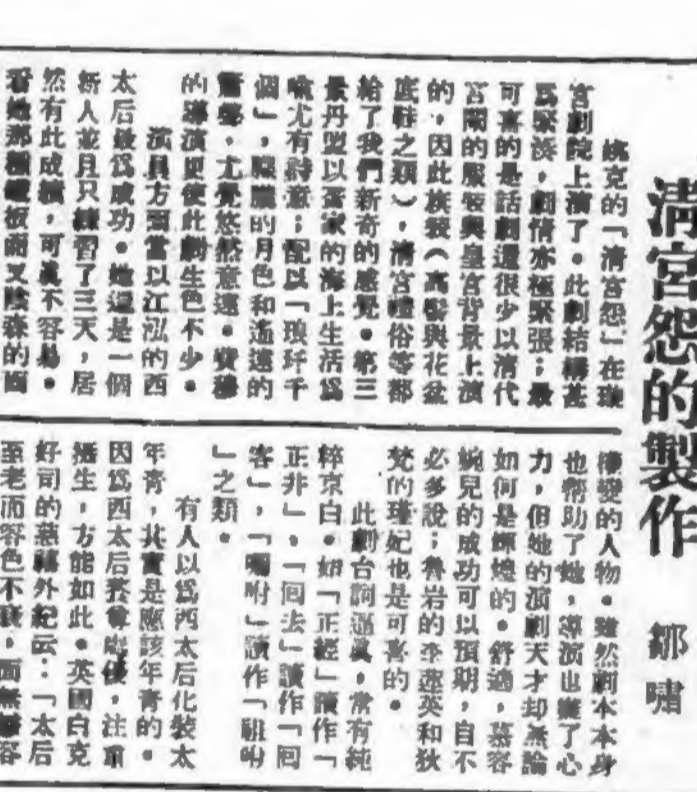 清宮怨的製作
鄒嘯
姚克的「清宮怨」在璇
宮劇院上演了。此劇結構甚
爲緊湊,劇情亦極緊張;最
可喜的是話劇還很少以清代
宮闈的服裝與皇宮背景上演
的,因此族裝(高髻與花盆
底鞋之類),清宮禮俗等都
給了我們新奇的感覺。第三
景丹盟以蛋家的海上生活爲
喻尤有詩意;配以「琅玕千
個」,朦朧的月色和遙遠的
簫聲,尤覺悠然意遠。費穆
的導演更使此劇生色不少。
演員方面當以江泓的西
太后最爲成功。她還是一個
新人並且只練習了三天,居
然有此成績,可眞不容易。
看她那 而又陰森的面
變的人物。雖然劇本本身
也幫助了她,導演也盡了心
力,但她的演劇天才却無論
如何是輝煌的。舒適,慕容
婉兒的成功可以預期,自不
必多說;魯岩的李蓮英和狄
梵的瑾妃也是可喜的。
此劇台詞逼眞,常有純
粹京白。如「正經」讀作「
正井」,「回法」讀作「回
客」,「囑咐」讀作「祖咐
」之類。
有人以爲西太后化裝太
年青,其實是應該年青的。
因爲西太后養尊處優,注重
攝生,方能如此。英國白克
好司的慈禧外紀云:「太后
至老而容色不衰,面無 容